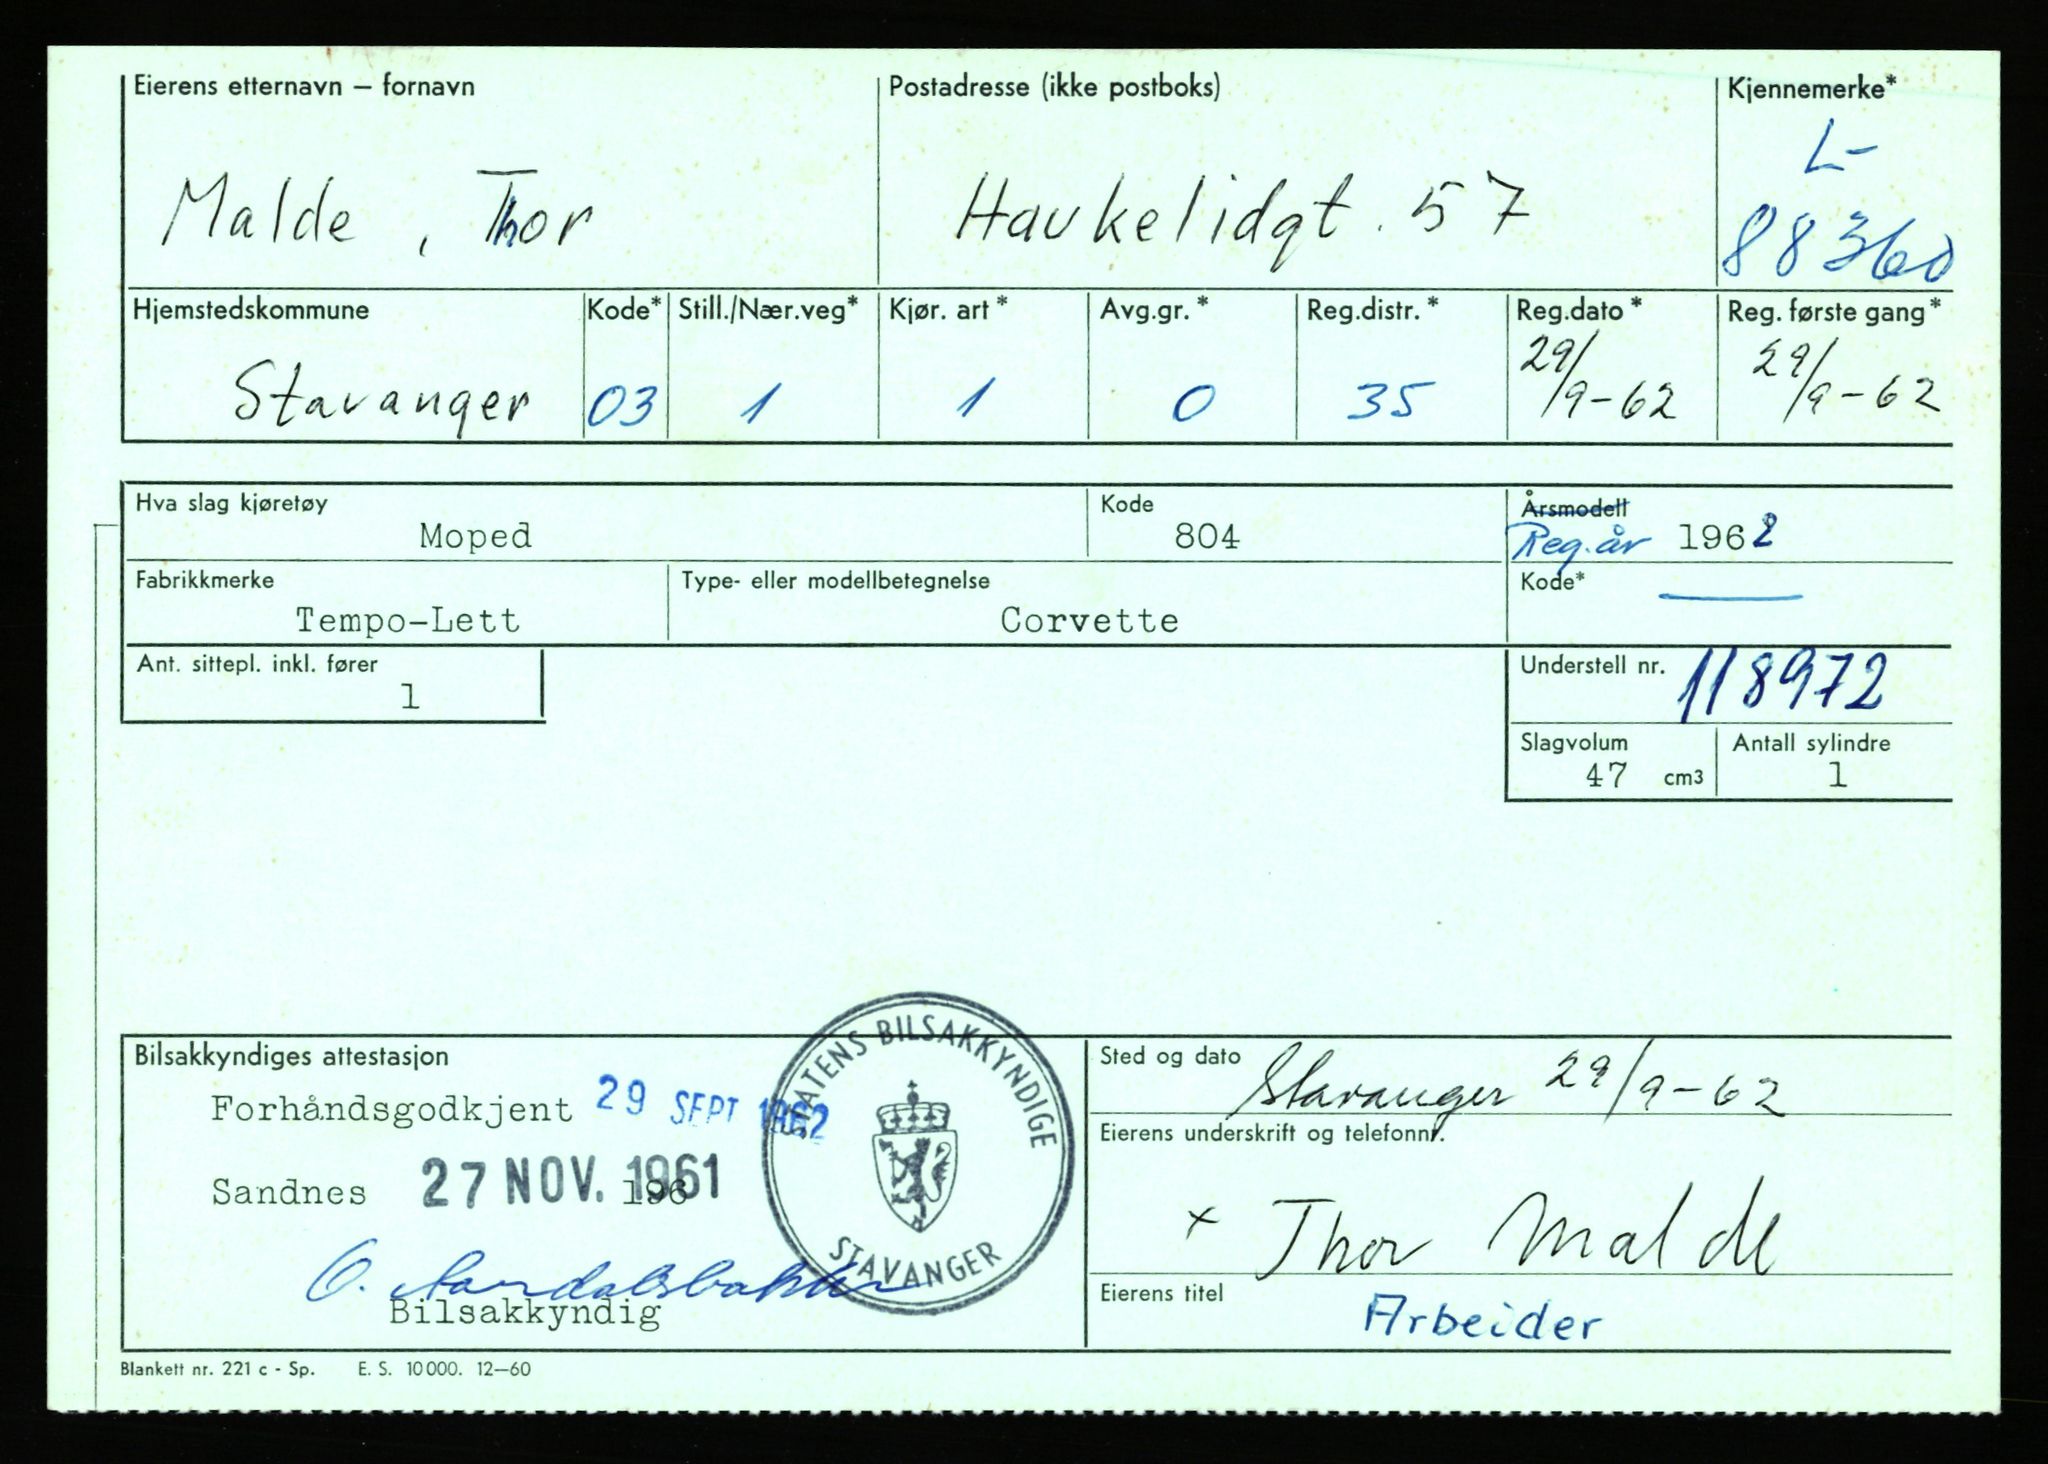 Eierens etternavn – fornavn Postadresse (ikke postboks) Kjennemerke*
L-
Malde, Thor Haukelidgt. 57 88360
Hjemstedskommune Kode* Still./Nær.veg* Kjør. art* Avg.gr.* Reg.distr.* Reg.dato* Reg. første gang*
Stavanger 03 1 1 0 35 29/9-62 29/9-62
Hva slag kjøretøy Kode Årsmodell
Moped 804 Reg.år 1962
Fabrikkmerke Type- eller modellbetegnelse Kode*
Tempo-Lett Corvette
Ant. sittepl. inkl. fører Understell nr. 118972
1
Slagvolum Antall sylindre
47 cm3 1
Bilsakkyndiges attestasjon
Forhåndsgodkjent 29 SEPT 1962
Sandnes 27 NOV. 1961 196
O.
Bilsakkyndig
STATENS BILSAKKYNDIGE
STAVANGER
Sted og dato Stavanger 29/9-62
Eierens underskrift og telefonnr.
x Thor Malde
Eierens titel
Arbeider
Blankett nr. 221 c - Sp. E. S. 10000. 12–60